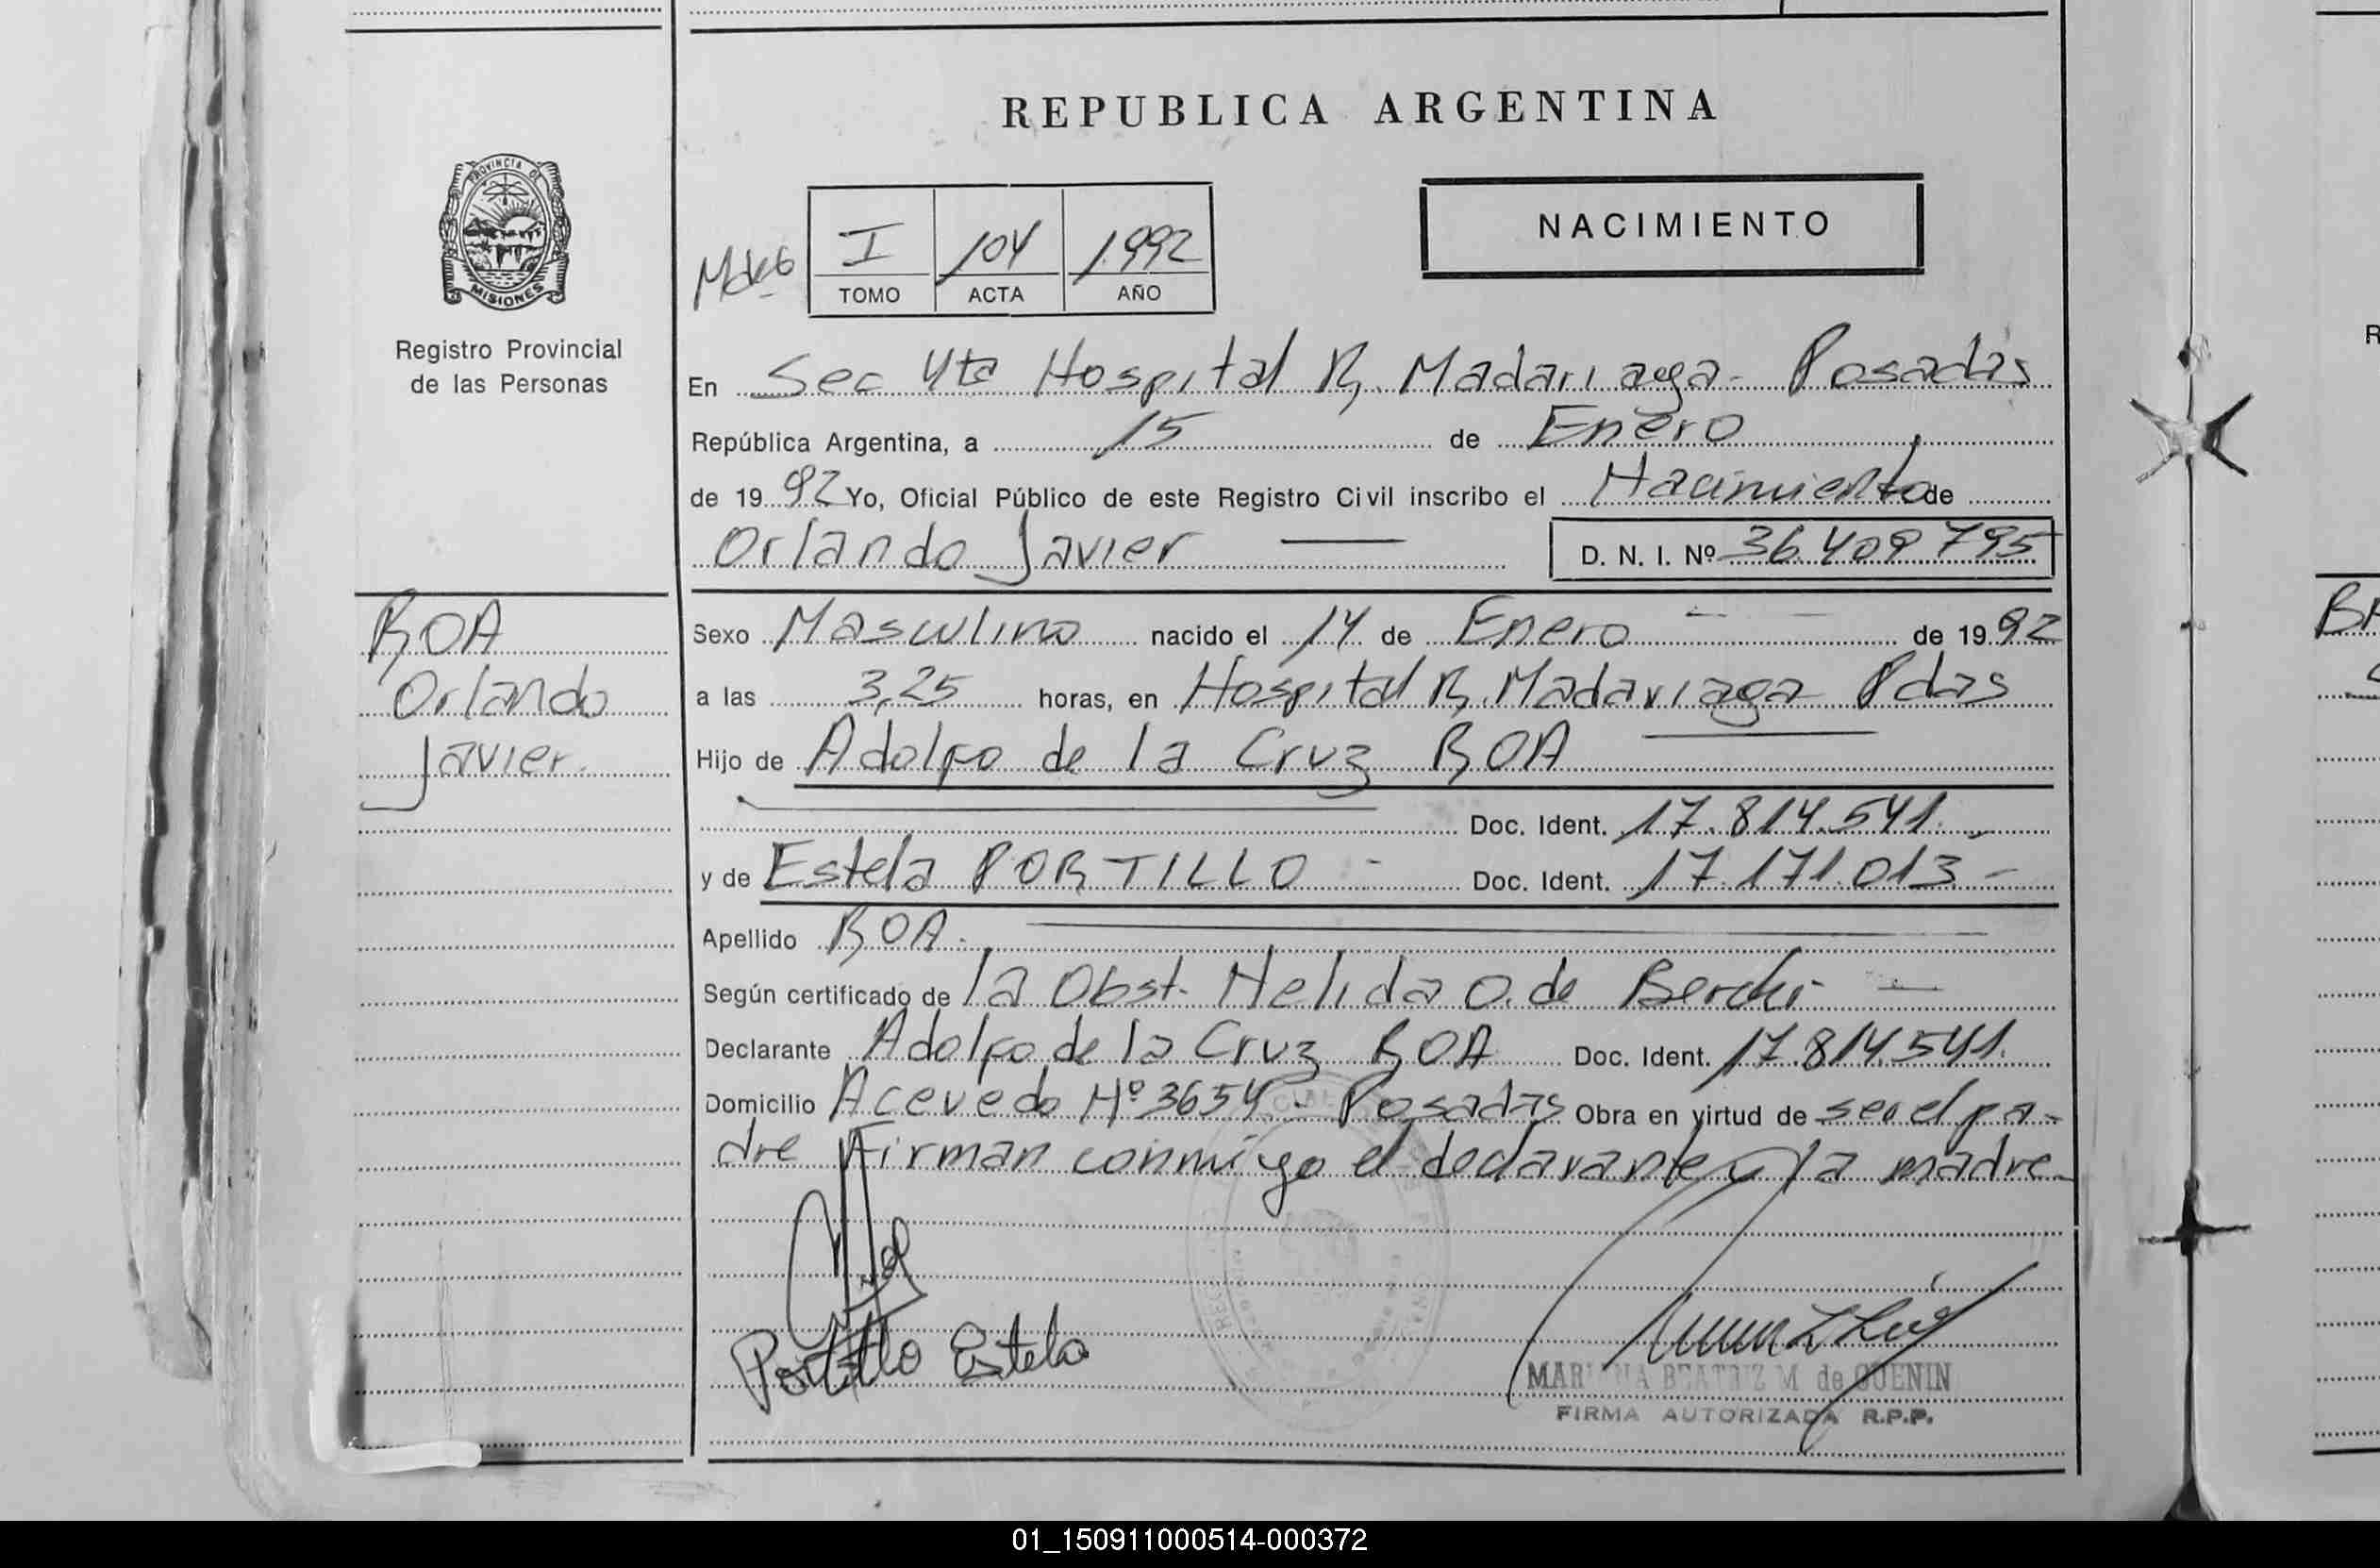 REPUBLICA ARGENTINA
PROVINCIA DE
MISIONES
Registro Provincial
de las Personas
NACIMIENTO
I 104 1992
TOMO ACTA AÑO
En Sec 4ta Hospital R, Madariaga - Posadas
República Argentina, a 15 de Enero
de 1992 Yo, Oficial Público de este Registro Civil inscribo el Nacimiento de
Orlando Javier — D. N. I. Nº 36.409.795
ROA
Orlando
Javier.
Sexo Masculino nacido el 14 de Enero - - de 1992
a las 3,25 horas, en Hospital R, Madariaga Pdas
Hijo de Adolfo de la Cruz ROA
Doc. Ident. 17.814.541.-
y de Estela PORTILLO - Doc. Ident. 17.171.013-
Apellido ROA.
Según certificado de la Obst. Nelida O. de —
Declarante Adolfo de la Cruz ROA Doc. Ident. 17.814.541.
Domicilio Acevedo Nº 3654 - Posadas Obra en virtud de ser el pa-
dre Firman conmigo el declarante y la madre-
Portillo Estela
BEATRIZ M de GUENIN
FIRMA AUTORIZADA R.P.P.
01_150911000514-000372